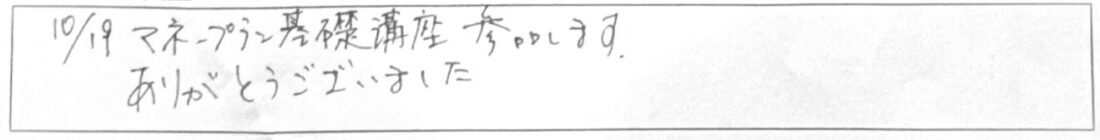 10/19 マネープラン基礎講座 参加します.
ありがとうございました